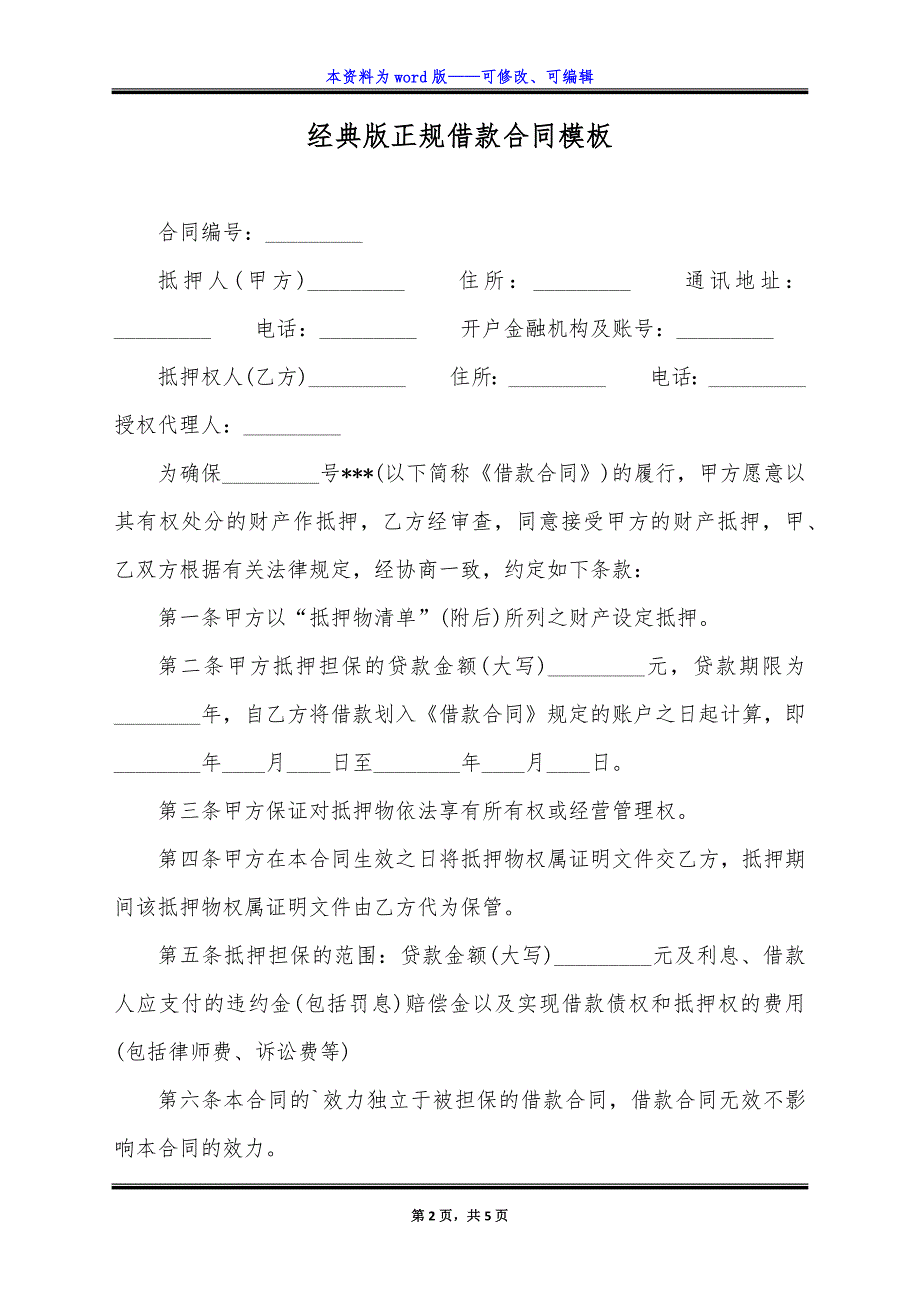 本资料为 word 版——可修改、可编辑
经典版正规借款合同模板
合同编号：_________
抵押人(甲方)_________ 住所：_________ 通讯地址：
_________ 电话：_________ 开户金融机构及账号：_________
抵押权人(乙方)_________ 住所：_________ 电话：_________
授权代理人：_________
为确保_________号***(以下简称《借款合同》)的履行，甲方愿意以
其有权处分的财产作抵押，乙方经审查，同意接受甲方的财产抵押，甲、
乙双方根据有关法律规定，经协商一致，约定如下条款：
第一条甲方以“抵押物清单”(附后)所列之财产设定抵押。
第二条甲方抵押担保的贷款金额(大写)_________元，贷款期限为
________年，自乙方将借款划入《借款合同》规定的账户之日起计算，即
________年____月____日至________年____月____日。
第三条甲方保证对抵押物依法享有所有权或经营管理权。
第四条甲方在本合同生效之日将抵押物权属证明文件交乙方，抵押期
间该抵押物权属证明文件由乙方代为保管。
第五条抵押担保的范围：贷款金额(大写)_________元及利息、借款
人应支付的违约金(包括罚息)赔偿金以及实现借款债权和抵押权的费用
(包括律师费、诉讼费等)
第六条本合同的`效力独立于被担保的借款合同，借款合同无效不影
响本合同的效力。
第 2 页，共 5 页